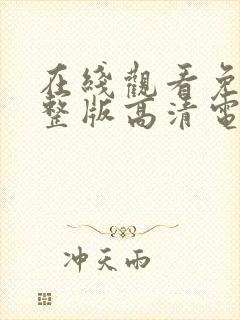 在綫觀看免
整版高清電
冲天雨